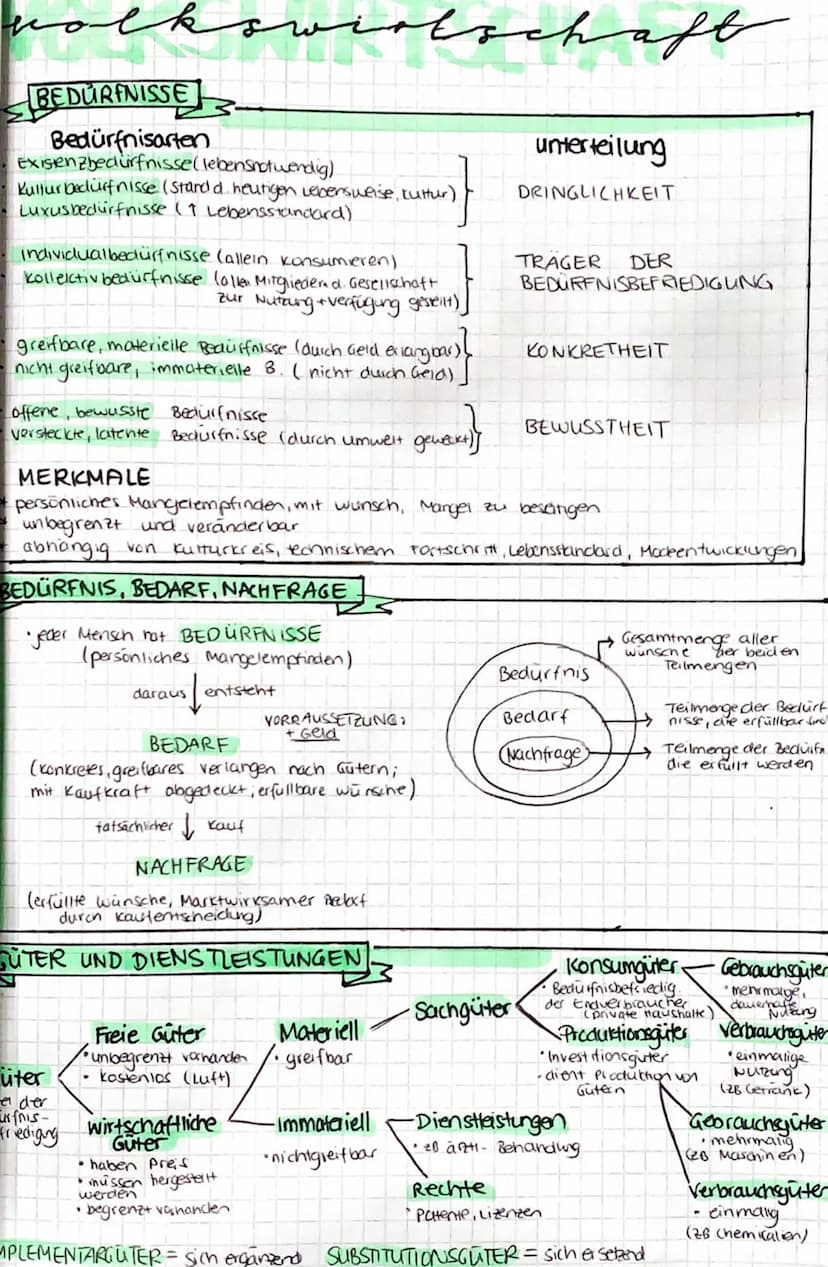 volkswirtschaft
BEDÜRFNISSE
Bedürfnisarten
unterteilung
Existenzbedürfnisse (lebensnotwendig)
Kulturbedürfnisse (stand d. heutigen Lebensweise, Kultur)
DRINGLICHKEIT
Luxusbedürfnisse (↑ Lebensstandard)
individualbedürfnisse (allein konsumieren)
TRÄGER DER
kollektivbedürfnisse (allen Mitgliedern d. Gesellschaft
BEDÜRFNISBEFRIEDIGUNG
zur Nutzung + Verfügung gestellt)
greifbare, materielle Bedürfnisse (durch Geld erlangbar)
KONKRETHEIT
nicht greifbare, immaterielle B. (nicht durch Geld)
offene, bewusste Bedürfnisse
BEWUSSTHEIT
versteckte, latente Bedürfnisse (durch umwelt geweckt)
MERKMALE
persönliches Mangelempfinden, mit wunsch, Mangel zu beseitigen
unbegrenzt und veränderbar
abhängig von Kulturkreis, technischem Fortschritt, Lebensstandard, Modeentwicklungen
BEDÜRFNIS, BEDARF, NACHFRAGE
• jeder Mensch hat BEDÜRFNISSE
(persönliches Mangelempfinden)
daraus entsteht
VORRAUSSETZUNG:
+ Geld
BEDARF
(konkretes, greifbares verlangen nach Gütern;
mit Kaufkraft abgedeckt, erfüllbare wünsche)
tatsächlicher Kauf
NACHFRAGE
(erfüllte wünsche, Marktwirksamer Bedarf
durch Kaufentscheidung)
Bedürfnis
Bedarf
Nachfrage
Gesamtmenge aller
wünsche der beiden
Teilmengen
Teilmenge der Bedürf
nisse, die erfüllbar sind
Teilmenge der Bedürfn
die erfüllt werden
GÜTER UND DIENSTLEISTUNGEN
üter
der
friedigung
Freie Güter
• unbegrenzt vorhanden
• kostenlos (Luft)
wirtschaftliche
Güter
• haben Preis
• müssen hergestellt
werden
• begrenzt vorhanden
Materiell
• greifbar
Immateriell
• nichtgreifbar
Sachgüter
Dienstleistungen
• zB ärztl. Behandlung
Rechte
• Patente, Lizenzen
Konsumgüter
• Bedürfnisbefriedig.
der Endverbraucher
(private Haushalte)
Produktionsgüter
• Investitionsgüter
• dient Produktion von
Gütern
Gebrauchsgüter
• mehrmalige,
dauerhafte
Nutzung
Verbrauchsgüter
• einmalige
Nutzung
(zB Getränk)
Gebrauchsgüter
• mehrmalig
(zB Maschinen)
Verbrauchsgüter
• einmalig
(zB Chemikalien)
MPLEMENTARGÜTER = sich ergänzend SUBSTITUTIONSGÜTER = sich ersetzend